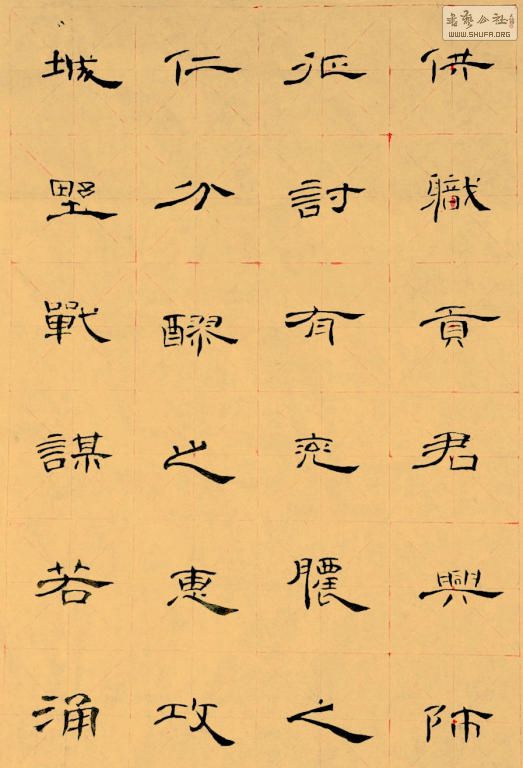 供職貢君興師
征討有兖膿之
仁分醪之惠攻
城野戰謀若涌
書藝公社
WWW.SHUFA.ORG